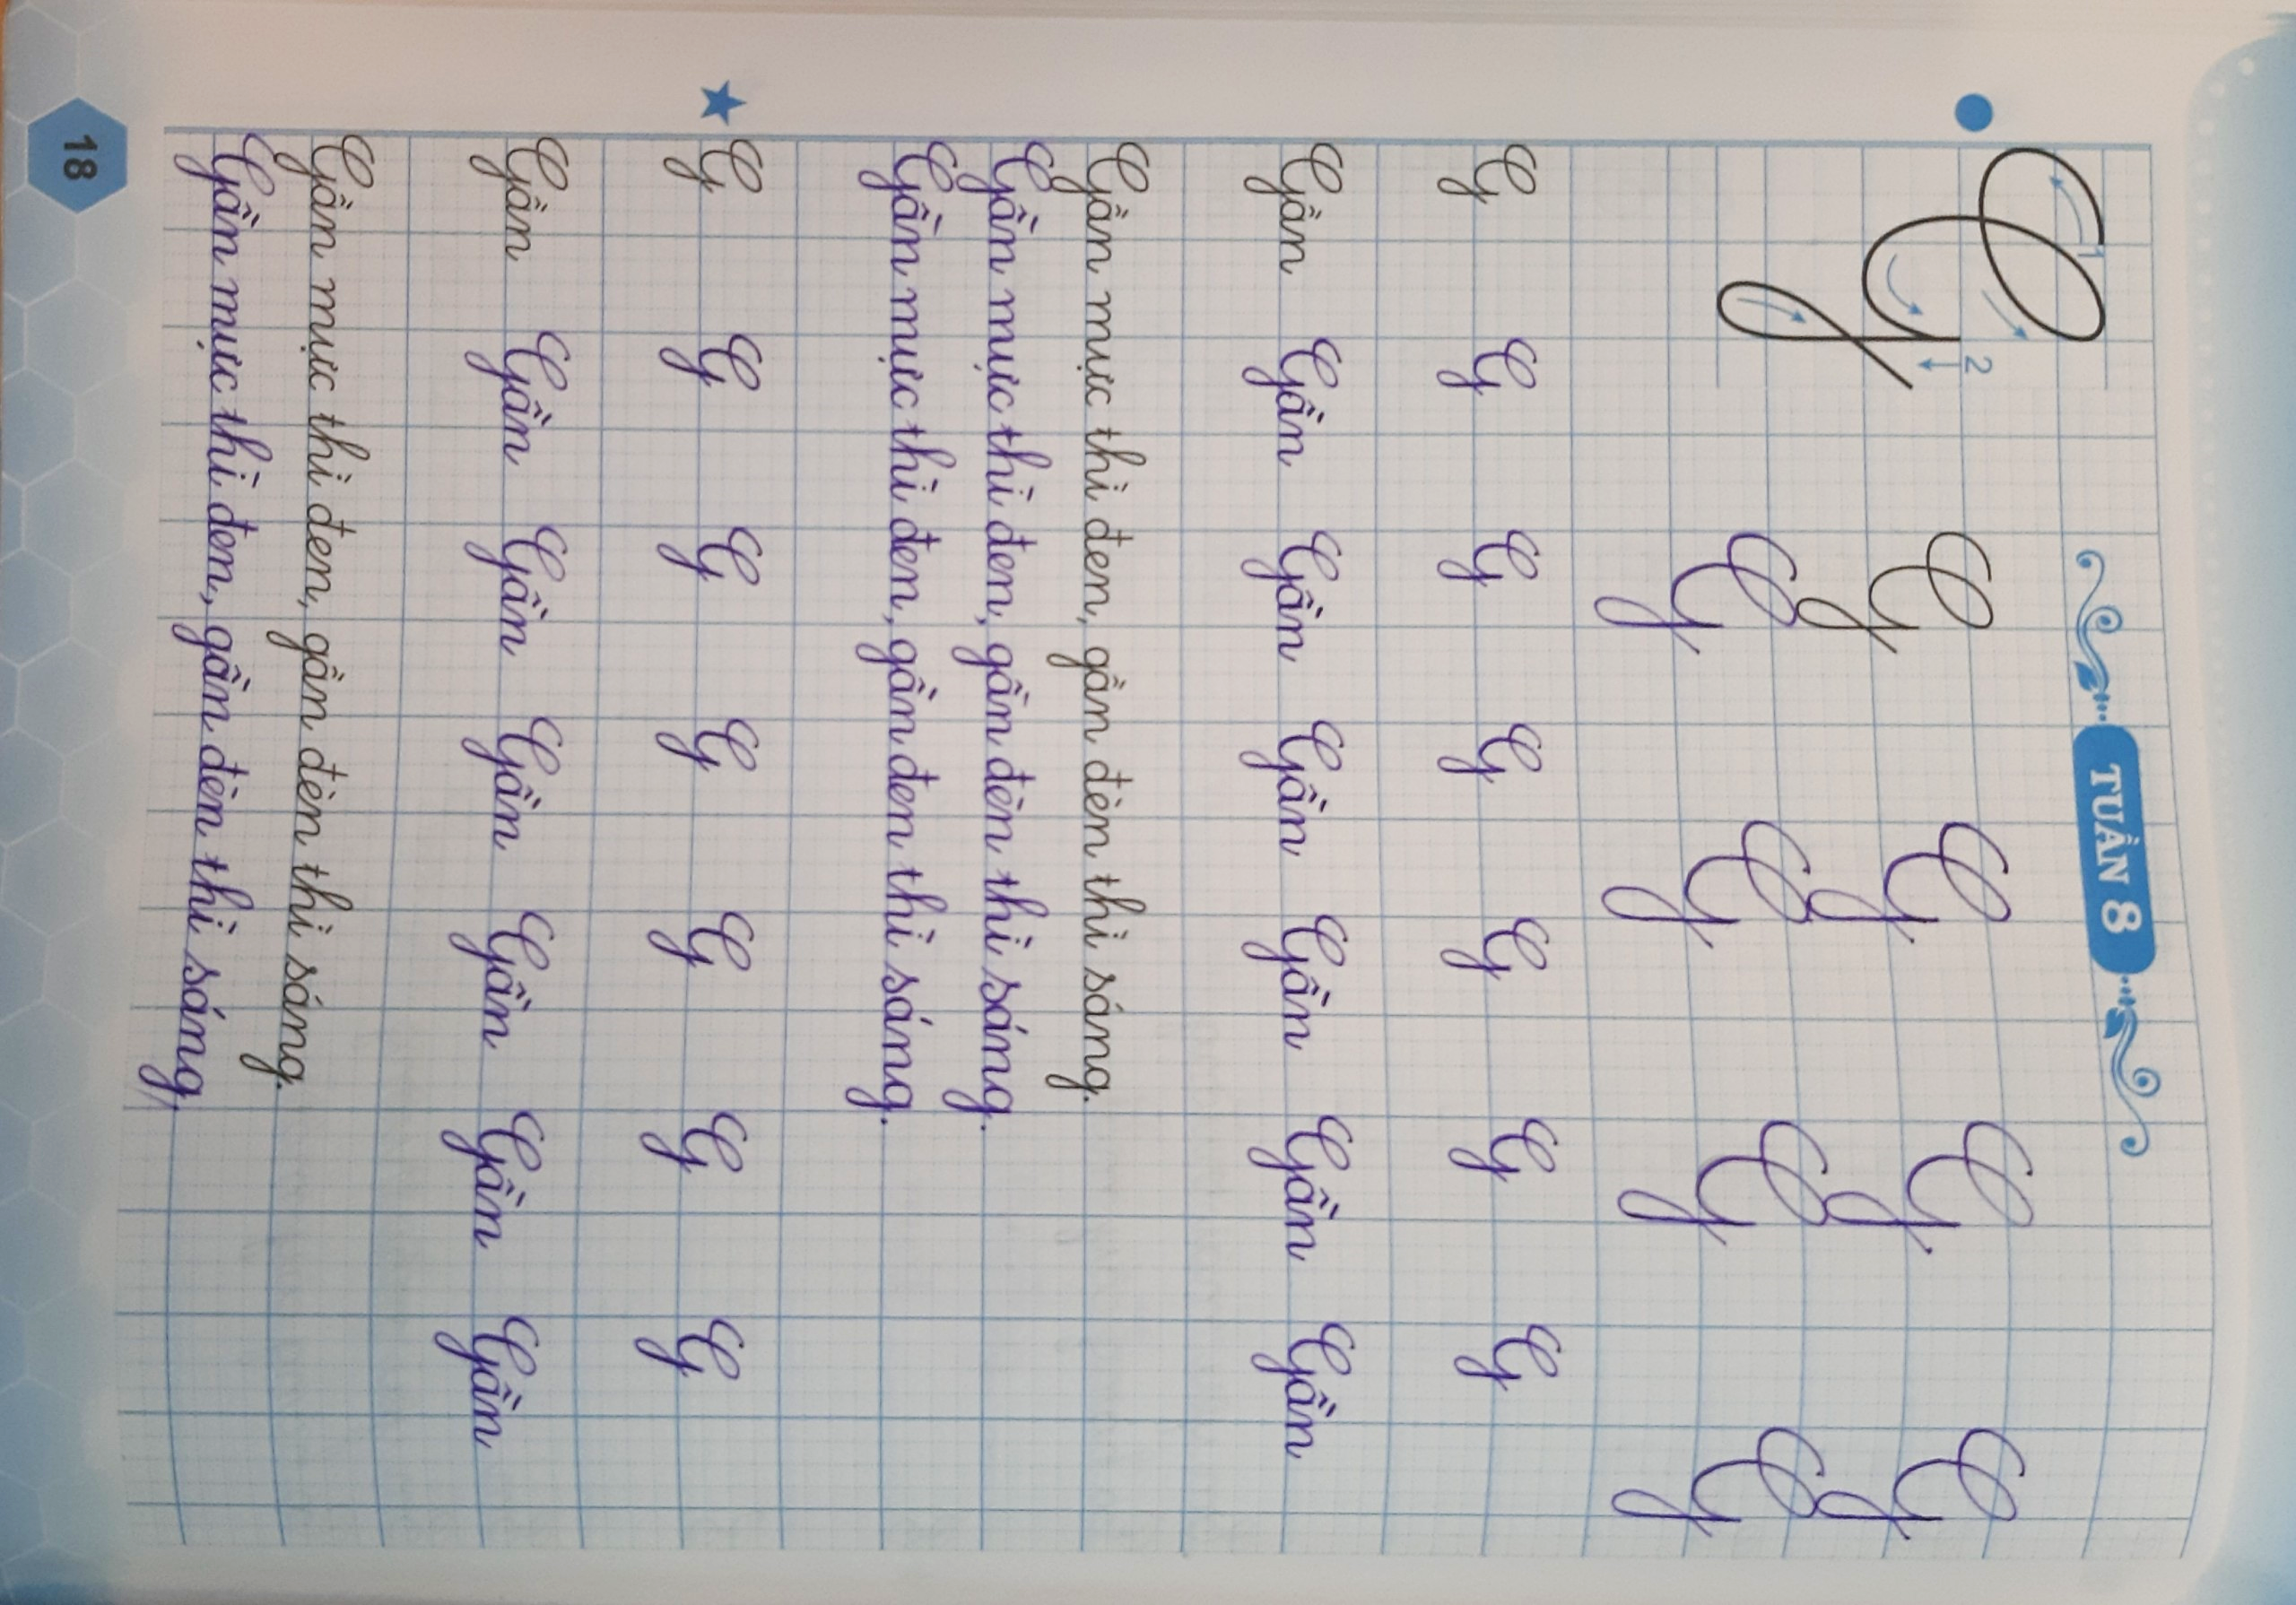 TUẦN 8
1
2
G G G G G
G G G G
G G G G G G G
Gần Gần Gần Gần Gần Gần Gần
Gần mực thì đen, gần đèn thì sáng.
Gần mực thì đen, gần đèn thì sáng.
Gần mực thì đen, gần đen thì sáng.
G G G G G G G
Gần Gần Gần Gần Gần Gần Gần
Gần mực thì đen, gần đèn thì sáng.
Gần mực thì đen, gần đèn thì sáng.
18